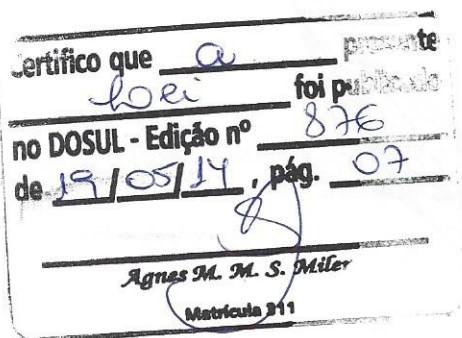 Certifico que a presente
Lei foi publicado
no DOSUL - Edição nº 876
de 19/05/14, pág. 07
Agnes M. M. S. Miler
Matrícula 311